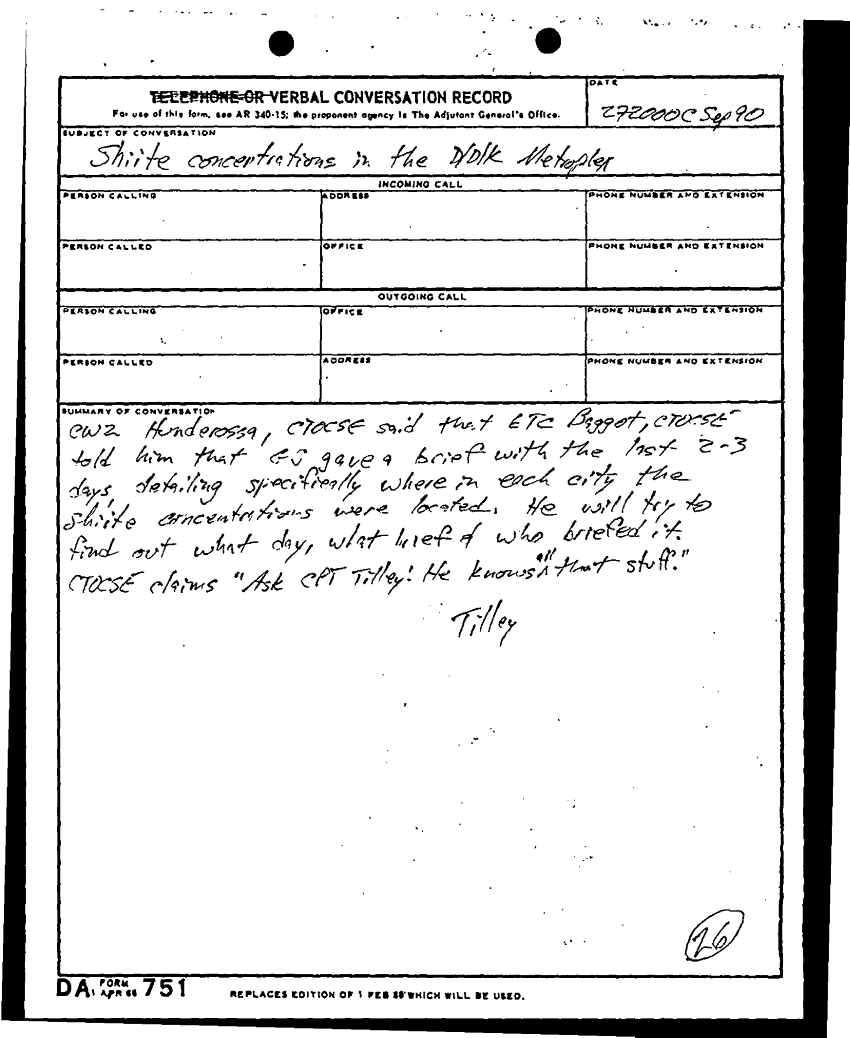 TELEPHONE OR VERBAL CONVERSATION RECORD
For use of this form, see AR 340-15; the proponent agency is The Adjutant General's Office.
DATE
272000C Sep 90
SUBJECT OF CONVERSATION
Shiite concentrations in the Metroplex
INCOMING CALL
PERSON CALLING
ADDRESS
PHONE NUMBER AND EXTENSION
PERSON CALLED
OFFICE
PHONE NUMBER AND EXTENSION
OUTGOING CALL
PERSON CALLING
OFFICE
PHONE NUMBER AND EXTENSION
PERSON CALLED
ADDRESS
PHONE NUMBER AND EXTENSION
SUMMARY OF CONVERSATION
CW2 CTOCSE said that Baggot, CTOCSE
told him that gave a brief with the last 2-3
days, detailing specifically where in each city the
Shiite concentrations were located. He will try to
find out what day, what brief & who briefed it.
CTOCSE claims "Ask CPT Tilley! He knows all that stuff."
Tilley
26
DA FORM 1 APR 66 751
REPLACES EDITION OF 1 FEB 58 WHICH WILL BE USED.